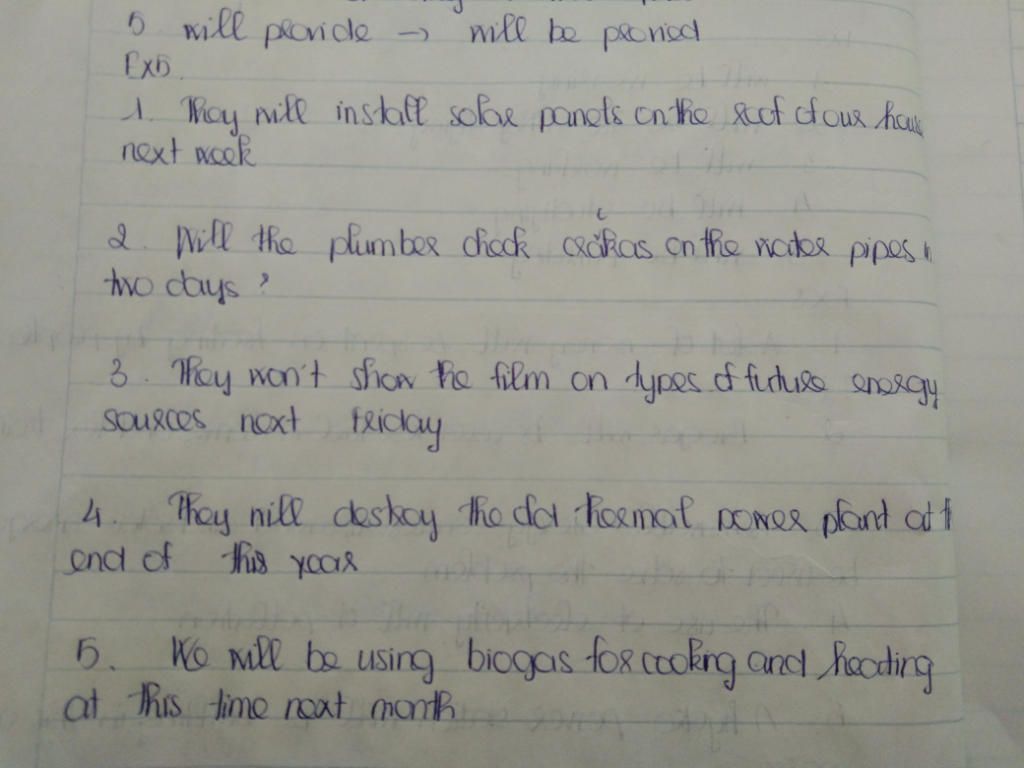 5 will provide → will be provied
Ex5.
1. They will install solar panels on the roof of our hous
next week
2. Will the plumber check cracks on the water pipes in
two days?
3. They won't show the film on types of future energy
sources next Friday
4. They will destroy the old thermal power plant at
end of this year
5. We will be using biogas for cooking and heating
at this time next month